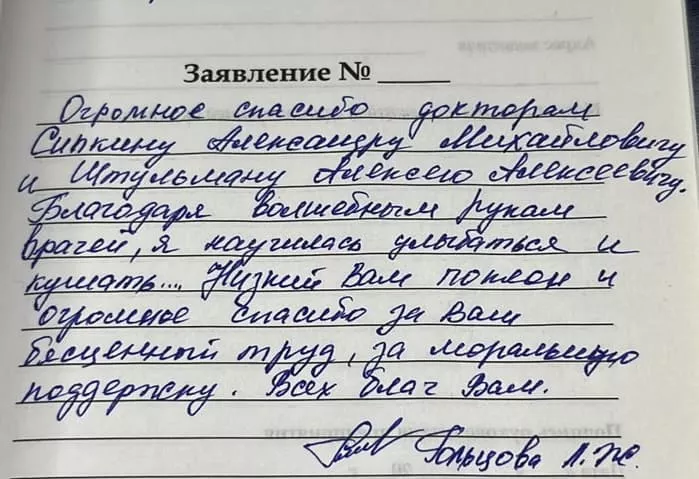 Заявление № _____
Огромное спасибо докторам
Сипкину Александру Михайловичу
и Штульману Алексею Алексеевичу.
Благодаря волшебным рукам
врачей, я научилась улыбаться и
кушать.... Низкий Вам поклон и
огромное спасибо за Вам
бесценный труд, за моральную
поддержку. Всех благ Вам.
Гольцова Л. Ж.